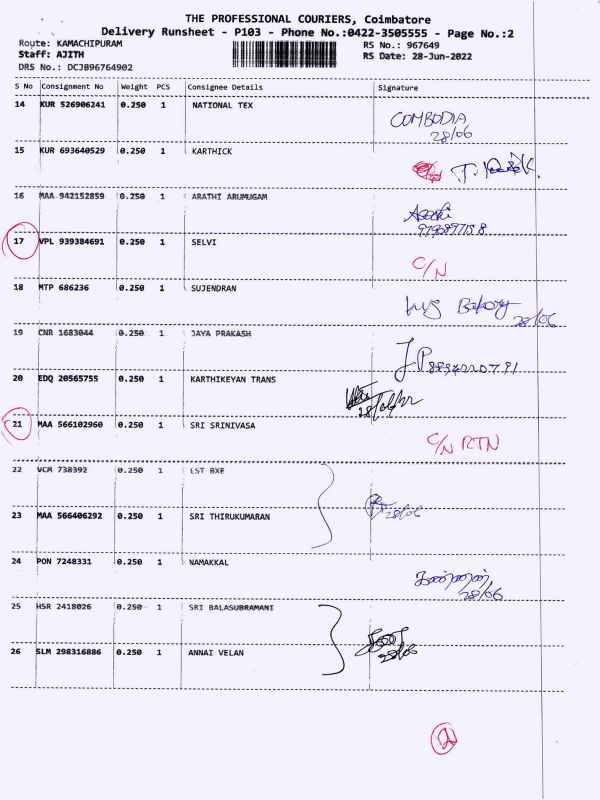 THE PROFESSIONAL COURIERS, Coimbatore
Delivery Runsheet - P103 - Phone No.:0422-3505555 - Page No.:2
Route: KAMACHIPURAM
RS No.: 967649
Staff: AJITH
RS Date: 28-Jun-2022
DRS No.: DCJB96764902
S No Consignment No Weight PCS Consignee Details Signature
14 KUR 526906241 0.250 1 NATIONAL TEX
COMBODIA
28/06
15 KUR 693640529 0.250 1 KARTHICK
16 MAA 942152859 0.250 1 ARATHI ARUMUGAM
17 VPL 939384691 0.250 1 SELVI
C/N
18 MTP 686236 0.250 1 SUJENDRAN
Bakery
28/06
19 CNR 1683044 0.250 1 JAYA PRAKASH
J.P
20 EDQ 20565755 0.250 1 KARTHIKEYAN TRANS
28/06/22
21 MAA 566102960 0.250 1 SRI SRINIVASA
C/N RTN
22 VCM 738392 0.250 1 LST BXE
28/06
23 MAA 566406292 0.250 1 SRI THIRUKUMARAN
24 PON 7248331 0.250 1 NAMAKKAL
28/06
25 HSR 2418026 0.250 1 SRI BALASUBRAMANI
28/06
26 SLM 298316886 0.250 1 ANNAI VELAN
2